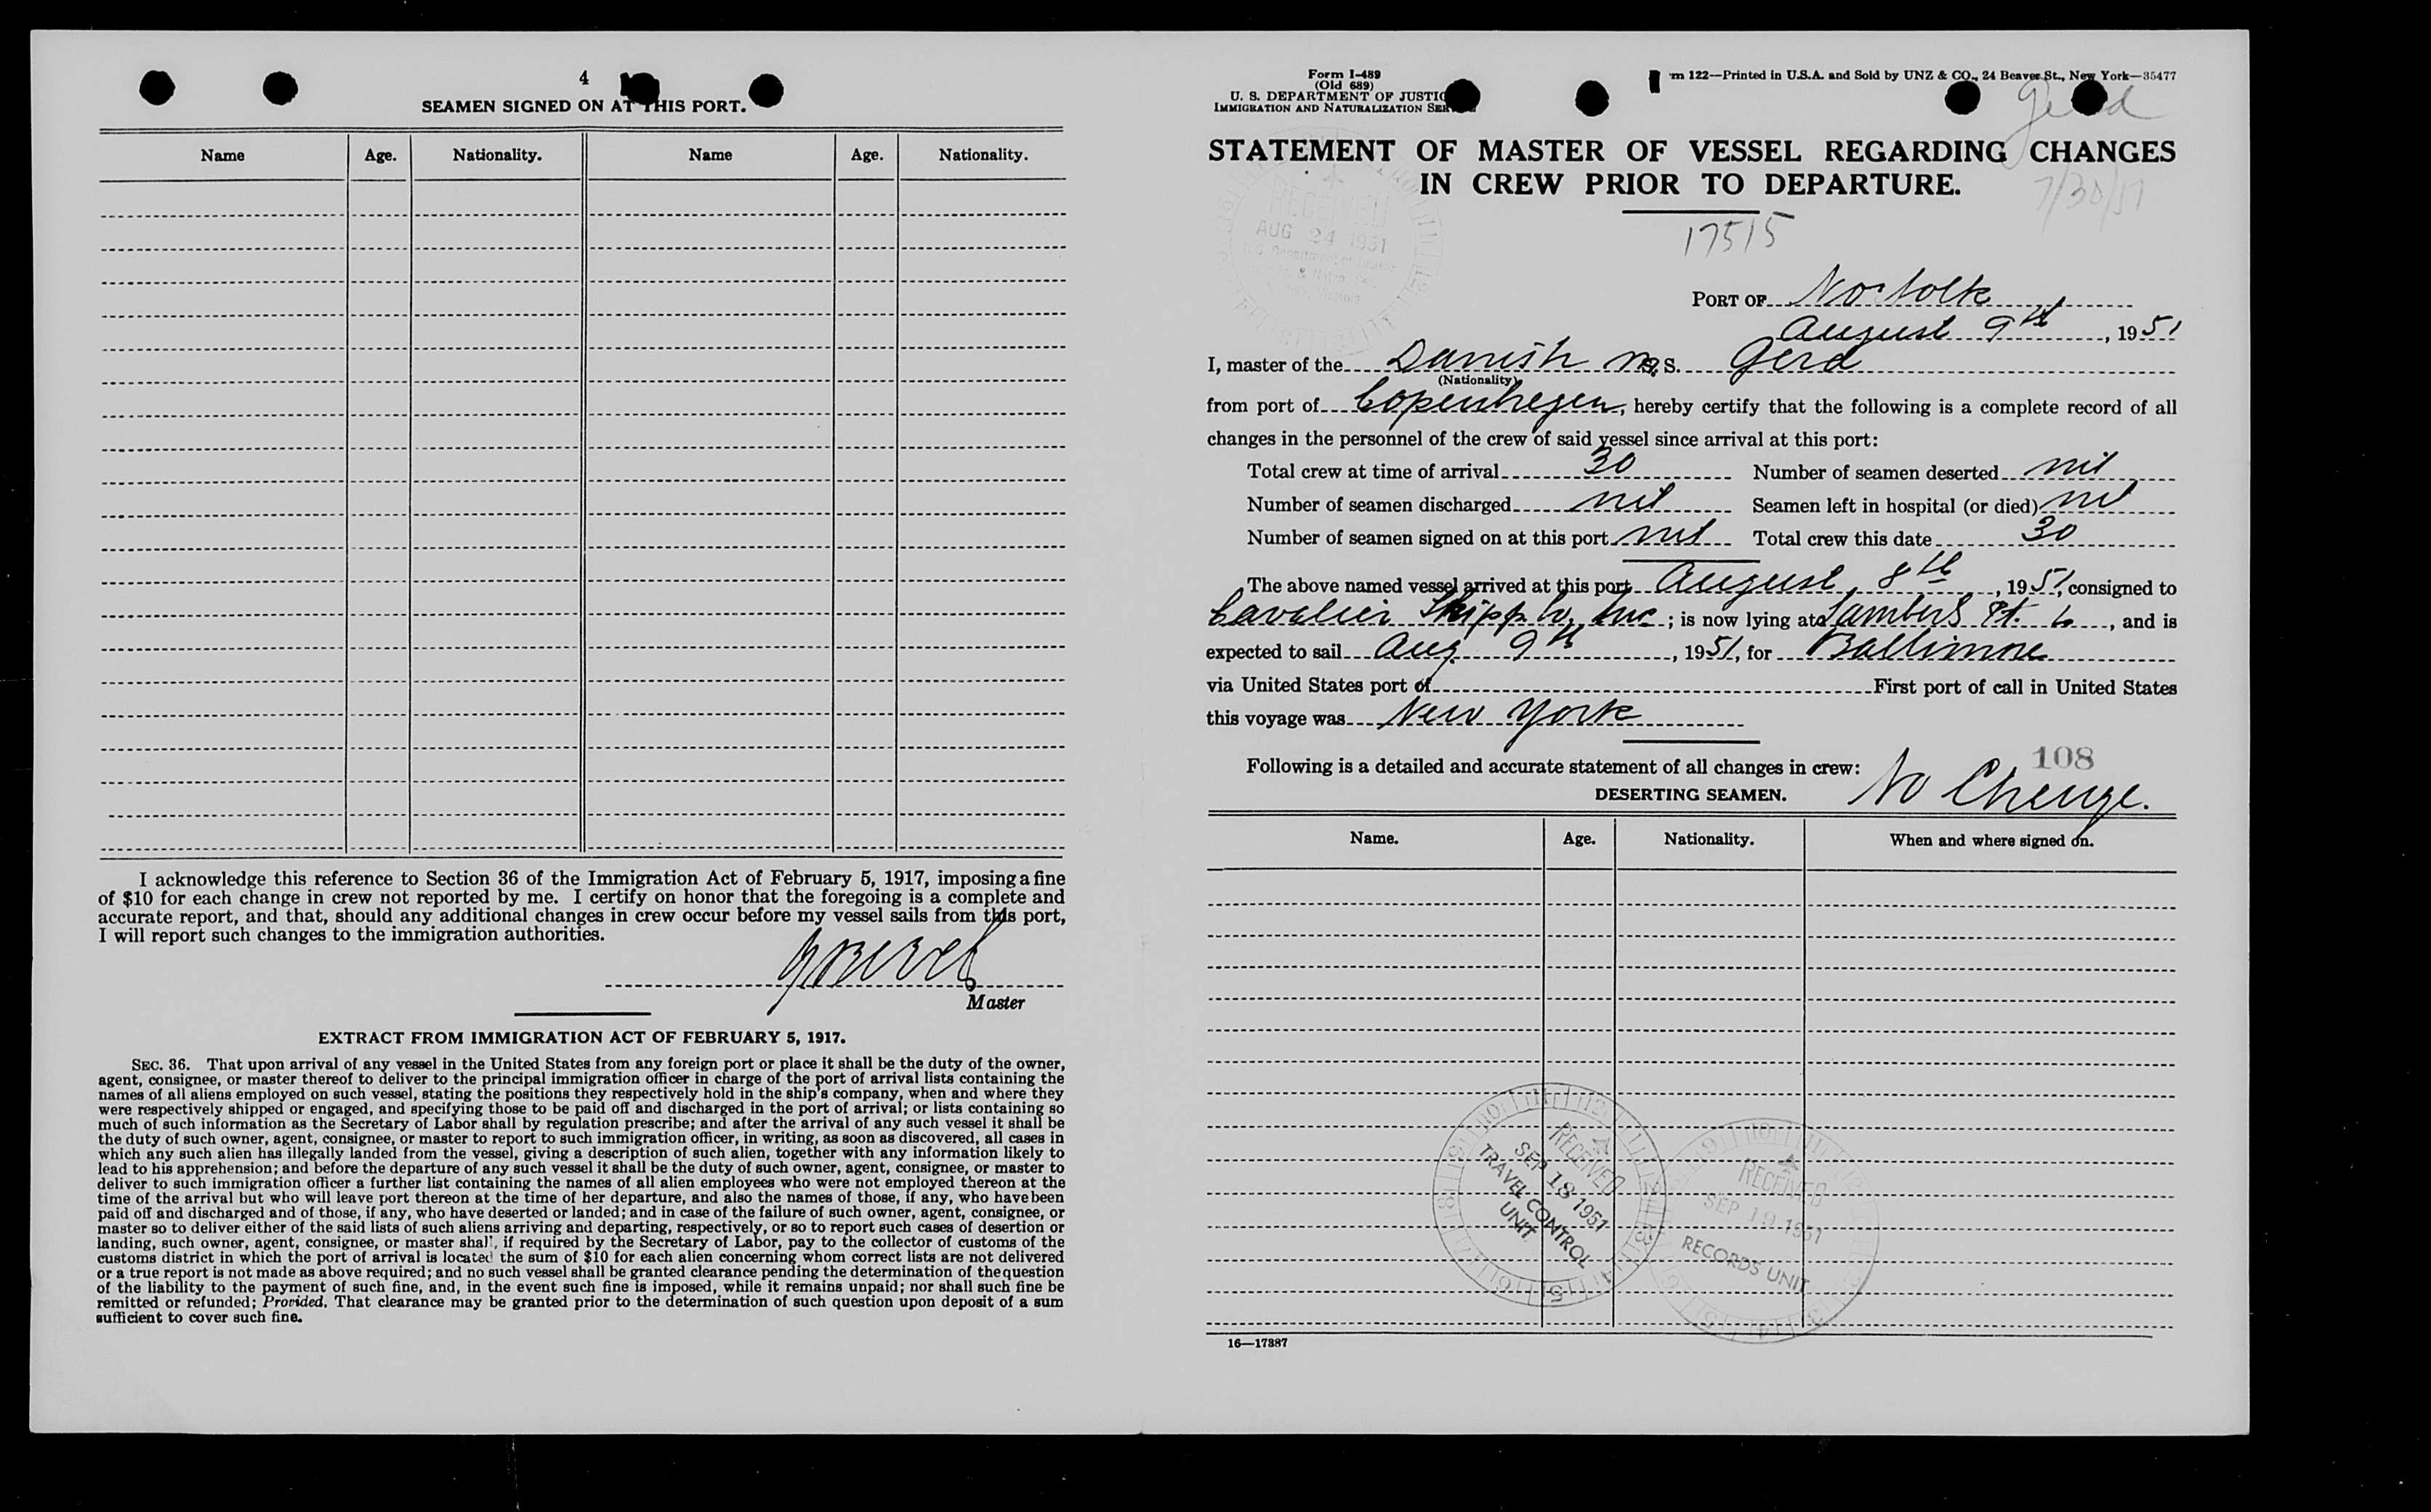 4
SEAMEN SIGNED ON AT THIS PORT.
Name Age. Nationality. Name Age. Nationality.
I acknowledge this reference to Section 36 of the Immigration Act of February 5, 1917, imposing a fine
of $10 for each change in crew not reported by me. I certify on honor that the foregoing is a complete and
accurate report, and that, should any additional changes in crew occur before my vessel sails from this port,
I will report such changes to the immigration authorities.
Master
EXTRACT FROM IMMIGRATION ACT OF FEBRUARY 5, 1917.
SEC. 36. That upon arrival of any vessel in the United States from any foreign port or place it shall be the duty of the owner,
agent, consignee, or master thereof to deliver to the principal immigration officer in charge of the port of arrival lists containing the
names of all aliens employed on such vessel, stating the positions they respectively hold in the ship's company, when and where they
were respectively shipped or engaged, and specifying those to be paid off and discharged in the port of arrival; or lists containing so
much of such information as the Secretary of Labor shall by regulation prescribe; and after the arrival of any such vessel it shall be
the duty of such owner, agent, consignee, or master to report to such immigration officer, in writing, as soon as discovered, all cases in
which any such alien has illegally landed from the vessel, giving a description of such alien, together with any information likely to
lead to his apprehension; and before the departure of any such vessel it shall be the duty of such owner, agent, consignee, or master to
deliver to such immigration officer a further list containing the names of all alien employees who were not employed thereon at the
time of the arrival but who will leave port thereon at the time of her departure, and also the names of those, if any, who have been
paid off and discharged and of those, if any, who have deserted or landed; and in case of the failure of such owner, agent, consignee, or
master so to deliver either of the said lists of such aliens arriving and departing, respectively, or so to report such cases of desertion or
landing, such owner, agent, consignee, or master shall, if required by the Secretary of Labor, pay to the collector of customs of the
customs district in which the port of arrival is located the sum of $10 for each alien concerning whom correct lists are not delivered
or a true report is not made as above required; and no such vessel shall be granted clearance pending the determination of the question
of the liability to the payment of such fine, and, in the event such fine is imposed, while it remains unpaid; nor shall such fine be
remitted or refunded; Provided, That clearance may be granted prior to the determination of such question upon deposit of a sum
sufficient to cover such fine.
Form I-489
(Old 689)
U. S. DEPARTMENT OF JUSTIC
IMMIGRATION AND NATURALIZATION SER
m 122—Printed in U.S.A. and Sold by UNZ & CO., 24 Beaver St., New York—35477
Gerd
STATEMENT OF MASTER OF VESSEL REGARDING CHANGES
IN CREW PRIOR TO DEPARTURE.
7/30/51
RECEIVED
AUG 24 1951
17515
PORT OF Norfolk
August 9th, 1951
I, master of the Danish M. S. Gerd
(Nationality)
from port of Copenhegen, hereby certify that the following is a complete record of all
changes in the personnel of the crew of said vessel since arrival at this port:
Total crew at time of arrival 30 Number of seamen deserted nil
Number of seamen discharged nil Seamen left in hospital (or died) nil
Number of seamen signed on at this port nil Total crew this date 30
The above named vessel arrived at this port August 8th, 1951, consigned to
Cavalier Shipp. Co. Inc.; is now lying at Lamberts Pt. 6, and is
expected to sail Aug 9th, 1951, for Baltimore
via United States port of First port of call in United States
this voyage was New York
108
Following is a detailed and accurate statement of all changes in crew: No Chenge.
DESERTING SEAMEN.
Name. Age. Nationality. When and where signed on.
RECEIVED
SEP 18 1951
TRAVEL CONTROL
UNIT
RECEIVED
SEP 19 1951
RECORDS UNIT
16—17387